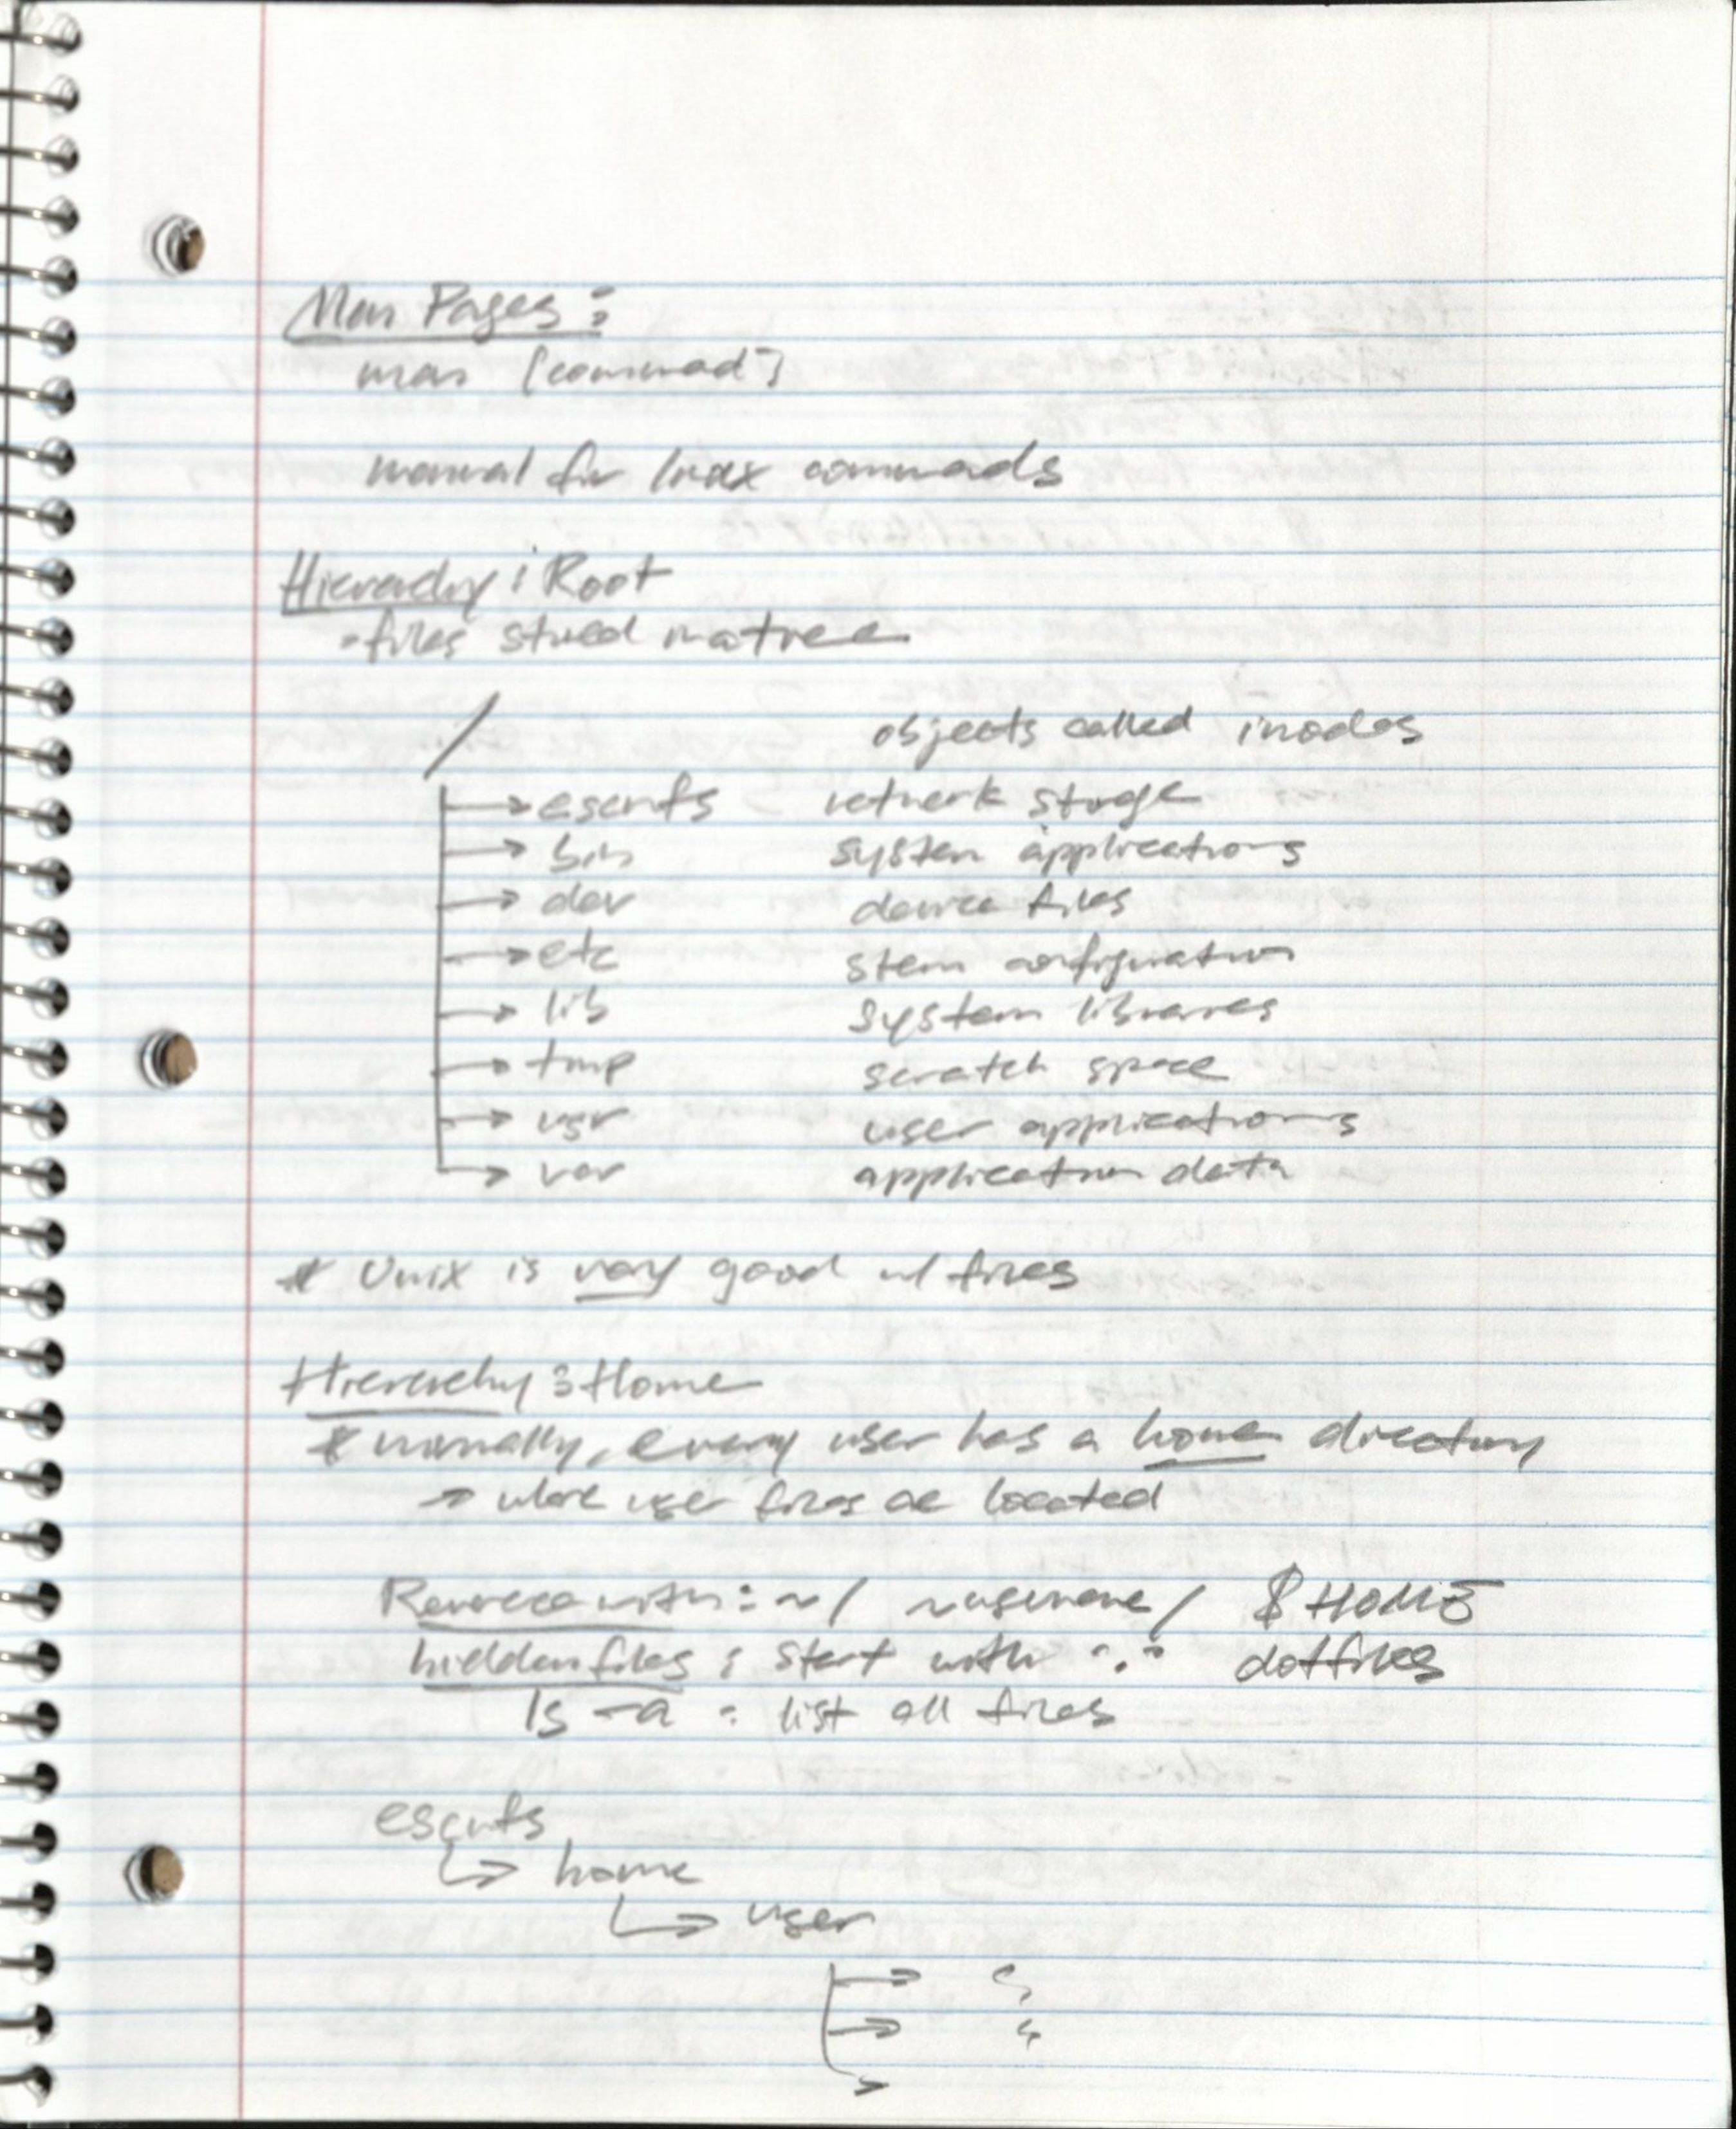 Man Pages:
man [commad]
manual for linux commads
Hierarchy: Root
• files stored in a tree
/ objects called inodes
→ escnfs network storage
→ bin system applications
→ dev device files
→ etc stem configuration
→ lib system libraries
→ tmp scratch space
→ usr user applications
→ var application data
* Unix is very good w/ files
Hierarchy: Home
* normally, every user has a home directory
→ where user files are located
with: ~/ ~username/ $HOME
hidden files: start with "." dotfiles
ls -a : list all files
escnfs
↳ home
↳ user